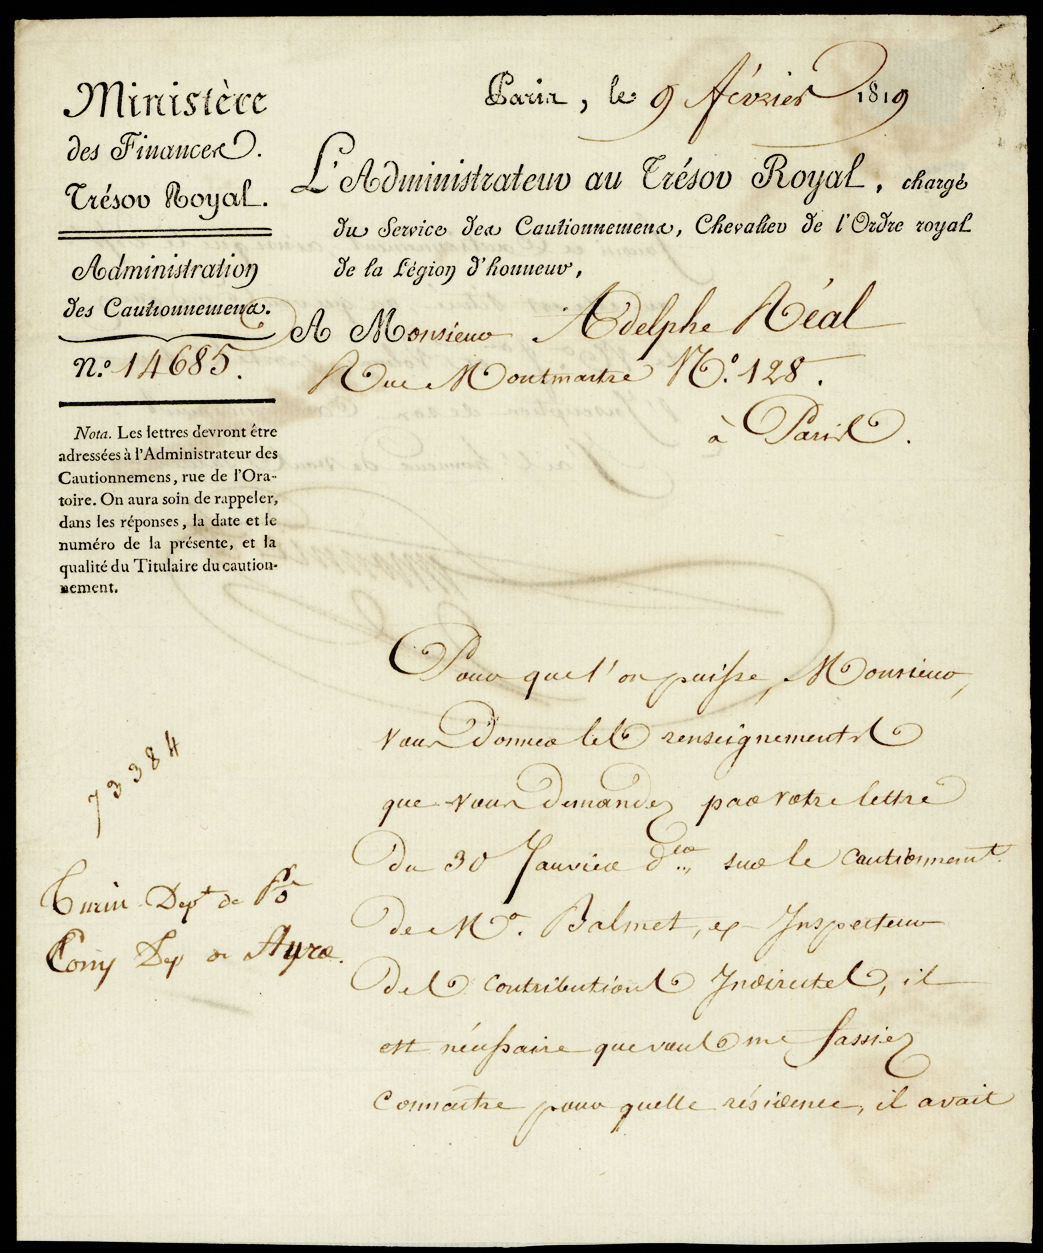 Ministère
des Finances.
Trésor Royal.
Administration
des Cautionnemens.
N.º 14685.
Nota. Les lettres devront être
adressées à l'Administrateur des
Cautionnemens, rue de l'Ora-
toire. On aura soin de rappeler,
dans les réponses, la date et le
numéro de la présente, et la
qualité du Titulaire du caution-
nement.
Paris, le 9 février 1819
L'Administrateur au Trésor Royal, chargé
du Service des Cautionnemens, Chevalier de l'Ordre royal
de la Légion d'honneur,
A Monsieur Adolphe Réal
Rue Montmartre N.º 128.
à Paris.
Pour que l'on puisse, Monsieur,
vous donner les renseignements
que vous demandez par votre lettre
du 30 Janvier d.er, sur le cautionnem.t
de M.r Balmet, ex Inspecteur
des contributions Indirectes, il
est nécessaire que vous me fassiez
connaitre pour quelle résidence, il avait
73384
Turin Dep.t de Pô
Cony Dep